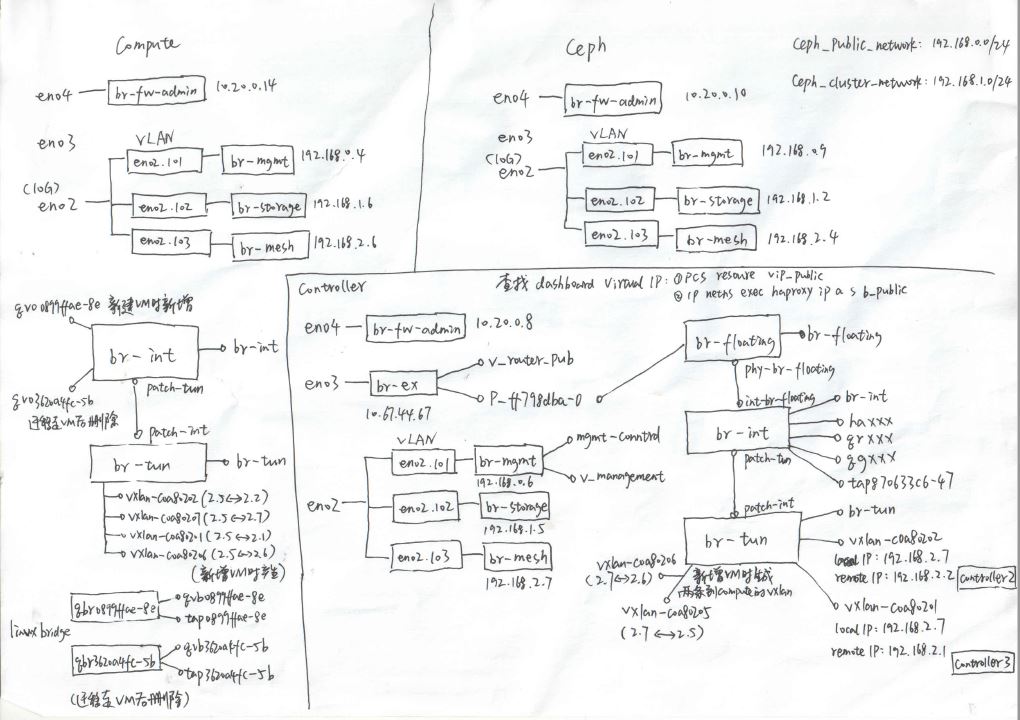 Compute
eno4
br-fw-admin
10.20.0.14
eno3
VLAN
eno2.101
br-mgmt
192.168.0.4
(10G)
eno2
eno2.102
br-storage
192.168.1.6
eno2.103
br-mesh
192.168.2.6
Ceph
Ceph_Public_network: 192.168.0.0/24
Ceph_cluster_network: 192.168.1.0/24
eno4
br-fw-admin
10.20.0.10
eno3
VLAN
(10G)
eno2
eno2.101
br-mgmt
192.168.0.9
eno2.102
br-storage
192.168.1.2
eno2.103
br-mesh
192.168.2.4
qvo0899ffae-8e 新建VM时新增
br-int
br-int
patch-tun
qvo3620a4fc-5b
迁移至VM后删除
patch-int
br-tun
br-tun
vxlan-c0a80202 (2.5↔2.2)
vxlan-c0a80207 (2.5↔2.7)
vxlan-c0a80201 (2.5↔2.1)
vxlan-c0a80206 (2.5↔2.6)
(新增VM时产生)
linux bridge
qbr0899ffae-8e
qvb0899ffae-8e
tap0899ffae-8e
qbr3620a4fc-5b
qvb3620a4fc-5b
tap3620a4fc-5b
(迁移至VM后删除)
Controller
查找 dashboard Virtual IP: ①PCS resoure vip_public
② ip netns exec haproxy ip a s b_public
eno4
br-fw-admin
10.20.0.8
eno3
br-ex
10.67.44.67
v_router_pub
P_ff798dba-0
VLAN
eno2
eno2.101
br-mgmt
192.168.0.6
mgmt-conntrd
v_management
eno2.102
br-storage
192.168.1.5
eno2.103
br-mesh
192.168.2.7
br-floating
br-floating
phy-br-floating
int-br-floating
br-int
br-int
haxxx
qrxxx
qgxxx
tap870633c6-47
patch-tun
patch-int
br-tun
br-tun
vxlan-c0a80202
local IP: 192.168.2.7
remote IP: 192.168.2.2
Controller2
vxlan-c0a80201
local IP: 192.168.2.7
remote IP: 192.168.2.1
Controller3
vxlan-c0a80206
(2.7↔2.6)
新增VM时生成
两条到compute的vxlan
vxlan-c0a80205
(2.7↔2.5)